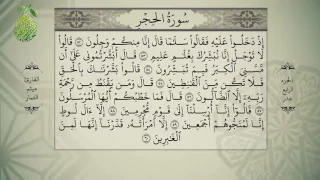 سُورَةُ الحِجْرِ
إِذْ دَخَلُوا۟ عَلَيْهِ فَقَالُوا۟ سَلَـٰمًا قَالَ إِنَّا مِنكُمْ وَجِلُونَ ۝٥٢ قَالُوا۟
لَا تَوْجَلْ إِنَّا نُبَشِّرُكَ بِغُلَـٰمٍ عَلِيمٍ ۝٥٣ قَالَ أَبَشَّرْتُمُونِى عَلَىٰٓ أَن
مَّسَّنِىَ ٱلْكِبَرُ فَبِمَ تُبَشِّرُونَ ۝٥٤ قَالُوا۟ بَشَّرْنَـٰكَ بِٱلْحَقِّ
فَلَا تَكُن مِّنَ ٱلْقَـٰنِطِينَ ۝٥٥ قَالَ وَمَن يَقْنَطُ مِن رَّحْمَةِ
رَبِّهِۦٓ إِلَّا ٱلضَّآلُّونَ ۝٥٦ قَالَ فَمَا خَطْبُكُمْ أَيُّهَا ٱلْمُرْسَلُونَ
۝٥٧ قَالُوٓا۟ إِنَّآ أُرْسِلْنَآ إِلَىٰ قَوْمٍ مُّجْرِمِينَ ۝٥٨ إِلَّآ ءَالَ لُوطٍ
إِنَّا لَمُنَجُّوهُمْ أَجْمَعِينَ ۝٥٩ إِلَّا ٱمْرَأَتَهُۥ قَدَّرْنَآ إِنَّهَا لَمِنَ
ٱلْغَـٰبِرِينَ ۝٦٠
الجزء
الرابع
عشر
القارئ
ميثم
التمار